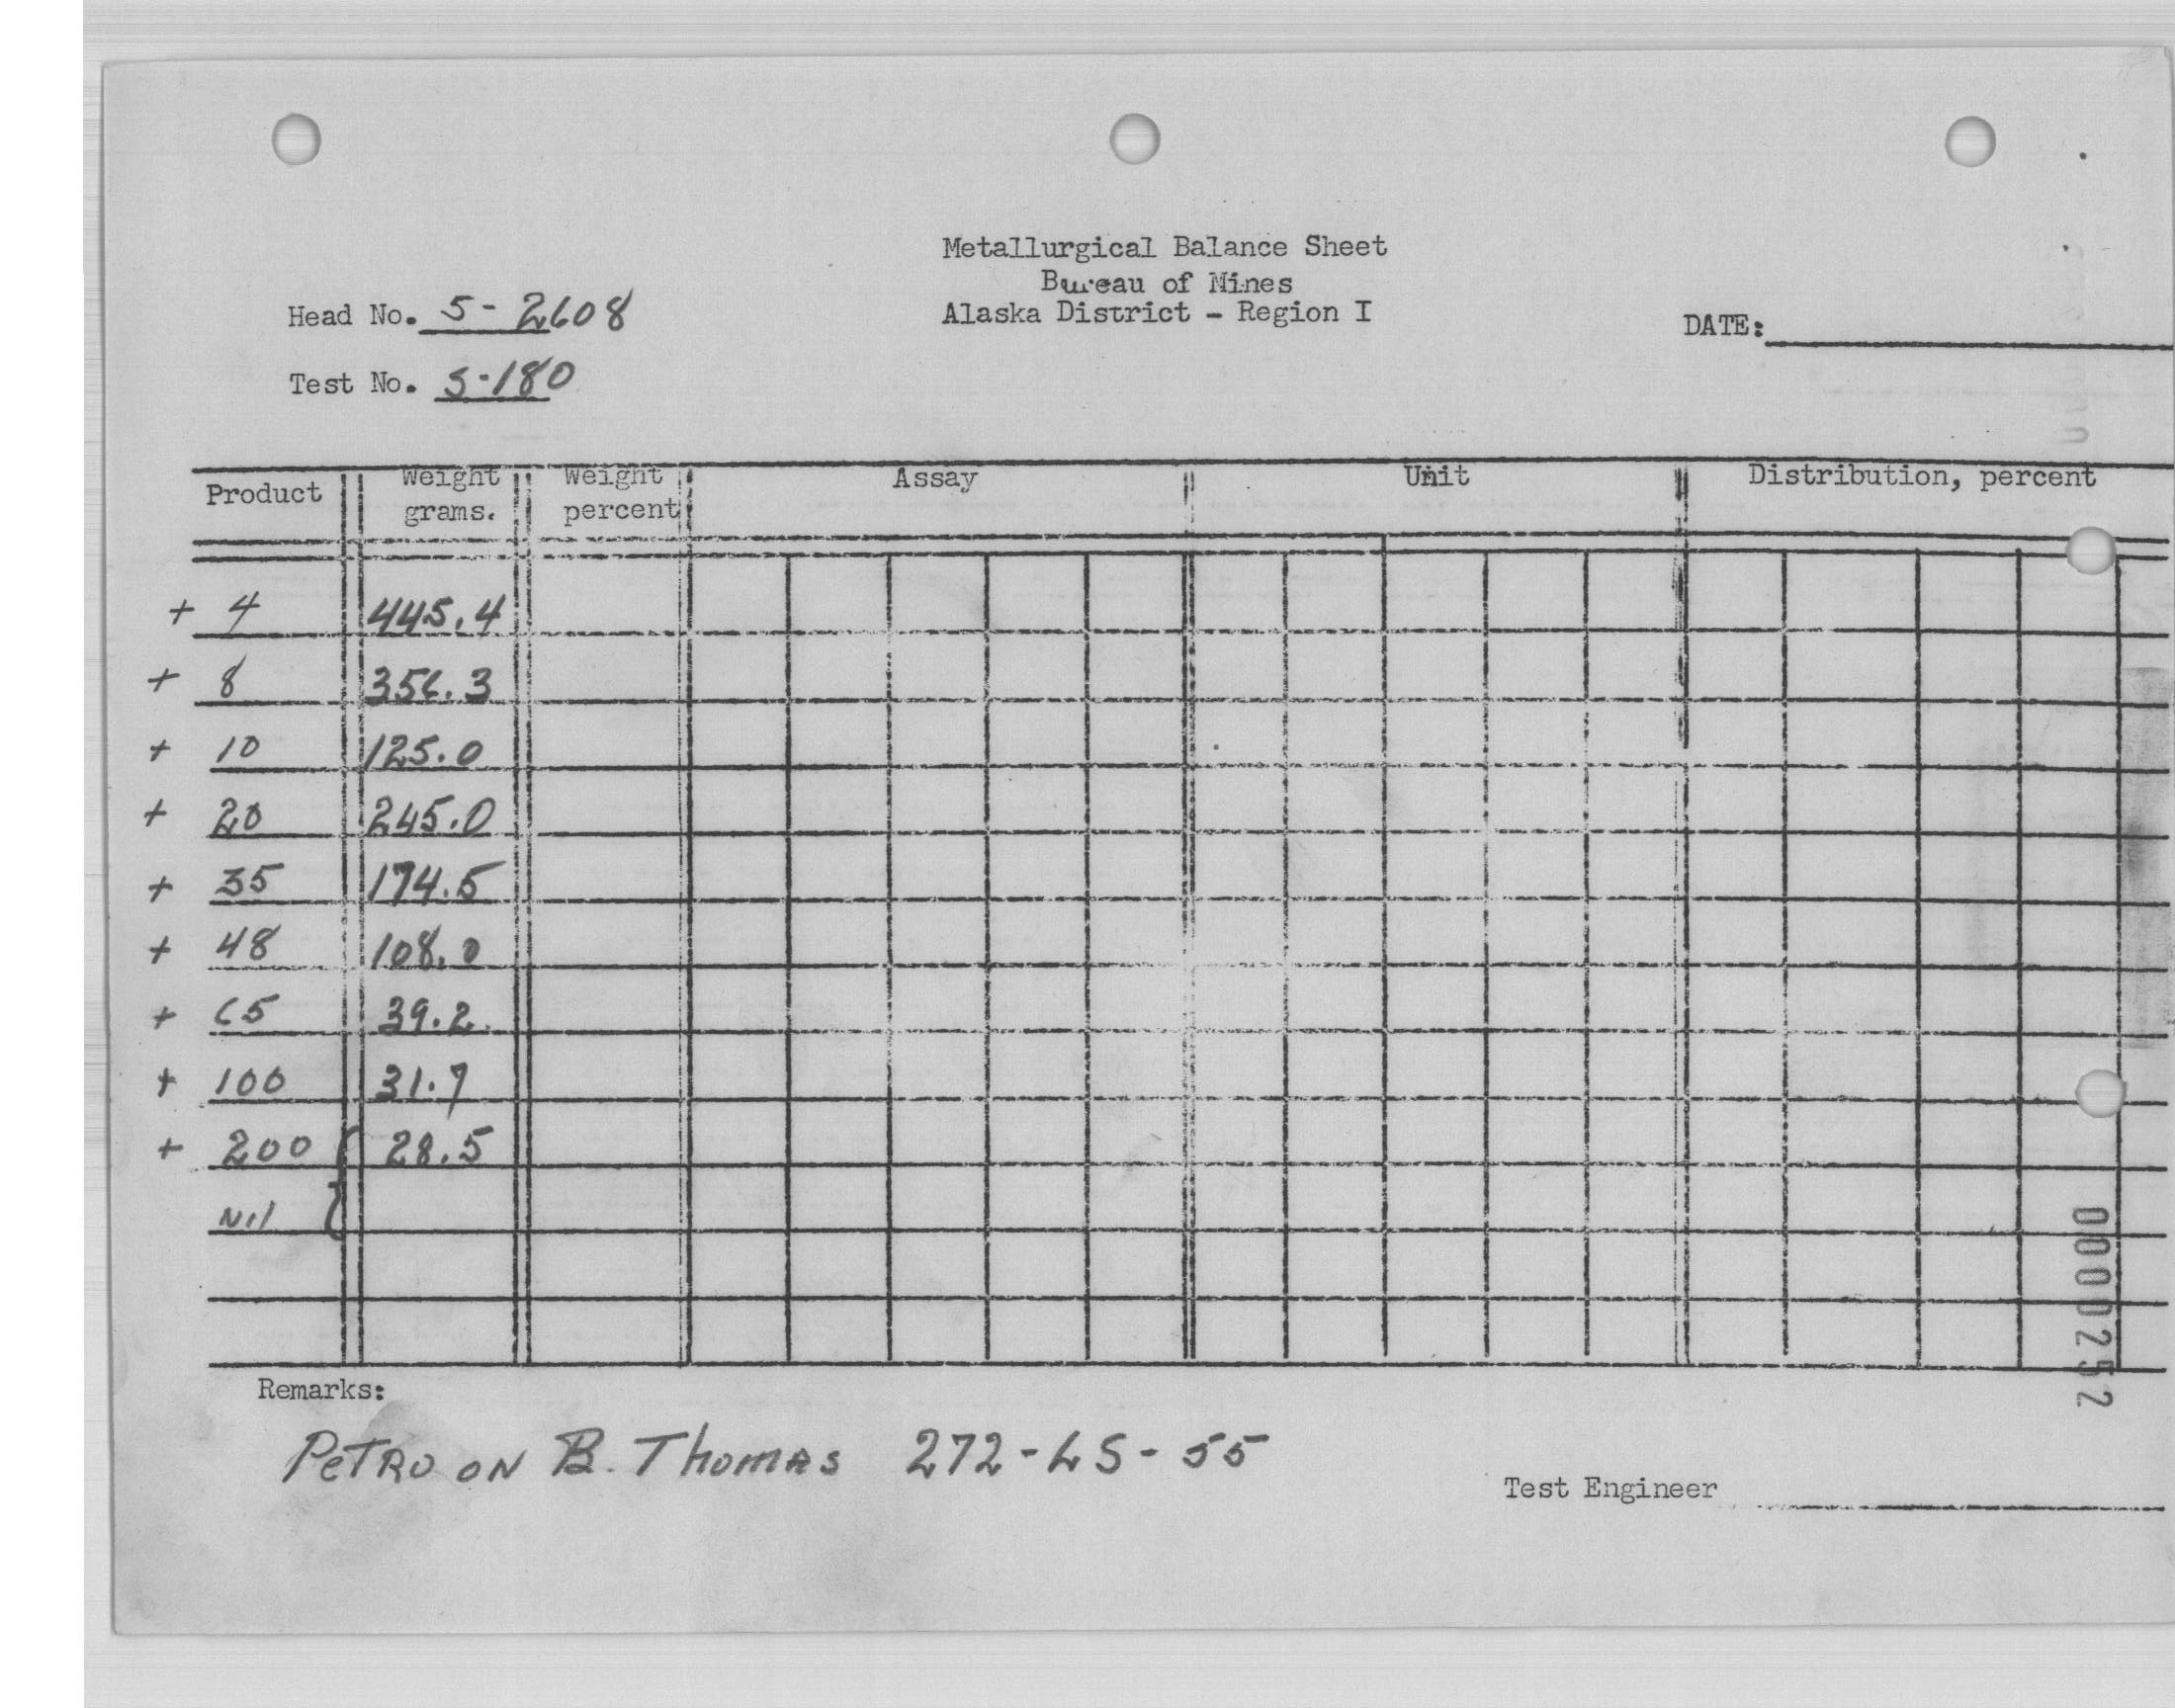 Metallurgical Balance Sheet
Bureau of Mines
Alaska District - Region I
Head No. S-2608
Test No. S-180
DATE:
Product Weight grams. Weight percent Assay Unit Distribution, percent
+ 4 445.4
+ 8 356.3
+ 10 125.0
+ 20 245.0
+ 35 174.5
+ 48 108.0
+ 65 39.2
+ 100 31.7
+ 200 28.5
Nil
0000252
Remarks:
PeTRO ON B. Thomas 272-LS-55
Test Engineer